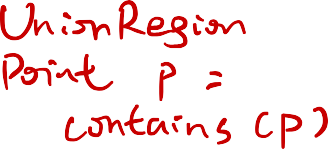 UnionRegion
Point p =
contains (p)